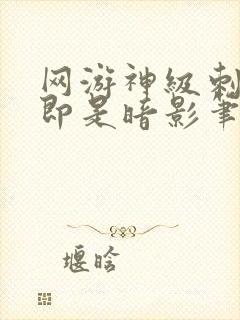 网游神级刺
即是暗影筆
堰晗